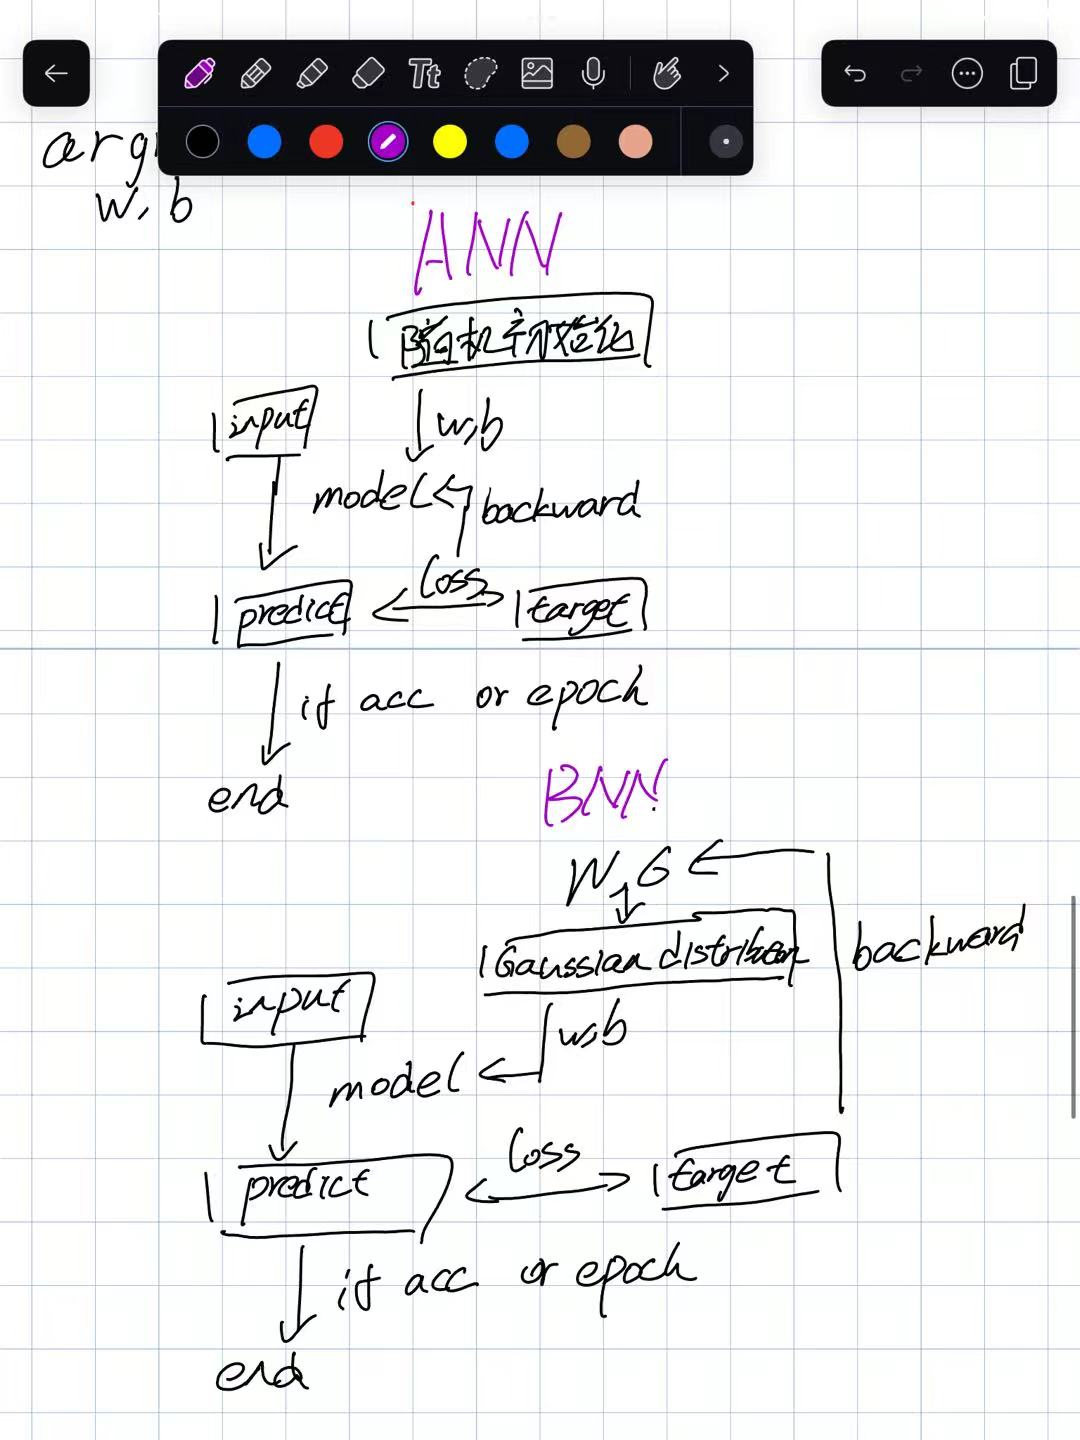 Tt
w, b
ANN
随机初始化
input
w,b
model
backward
loss
predict
target
if acc or epoch
end
BNN
W, G
backward
Gaussian distribution
input
w,b
model
loss
predict
target
if acc or epoch
end